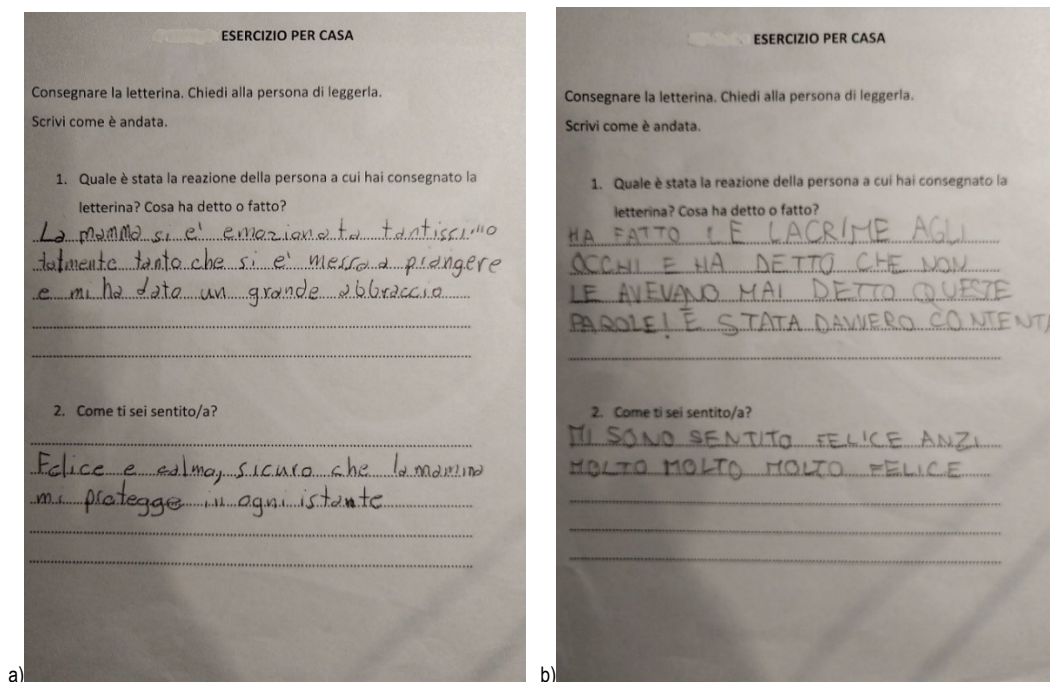 ESERCIZIO PER CASA
Consegnare la letterina. Chiedi alla persona di leggerla.
Scrivi come è andata.
1. Quale è stata la reazione della persona a cui hai consegnato la
letterina? Cosa ha detto o fatto?
La mamma si e' emozionata tantissimo
talmente tanto che si e' messa a piangere
e mi ha dato un grande abbraccio
2. Come ti sei sentito/a?
Felice e calma, sicuro che la mamma
mi protegge in ogni istante
a)
ESERCIZIO PER CASA
Consegnare la letterina. Chiedi alla persona di leggerla.
Scrivi come è andata.
1. Quale è stata la reazione della persona a cui hai consegnato la
letterina? Cosa ha detto o fatto?
HA FATTO LE LACRIME AGLI
OCCHI E HA DETTO CHE NON
LE AVEVANO MAI DETTO QUESTE
PAROLE! È STATA DAVVERO CONTENTA
2. Come ti sei sentito/a?
MI SONO SENTITO FELICE ANZI
MOLTO MOLTO MOLTO FELICE
b)